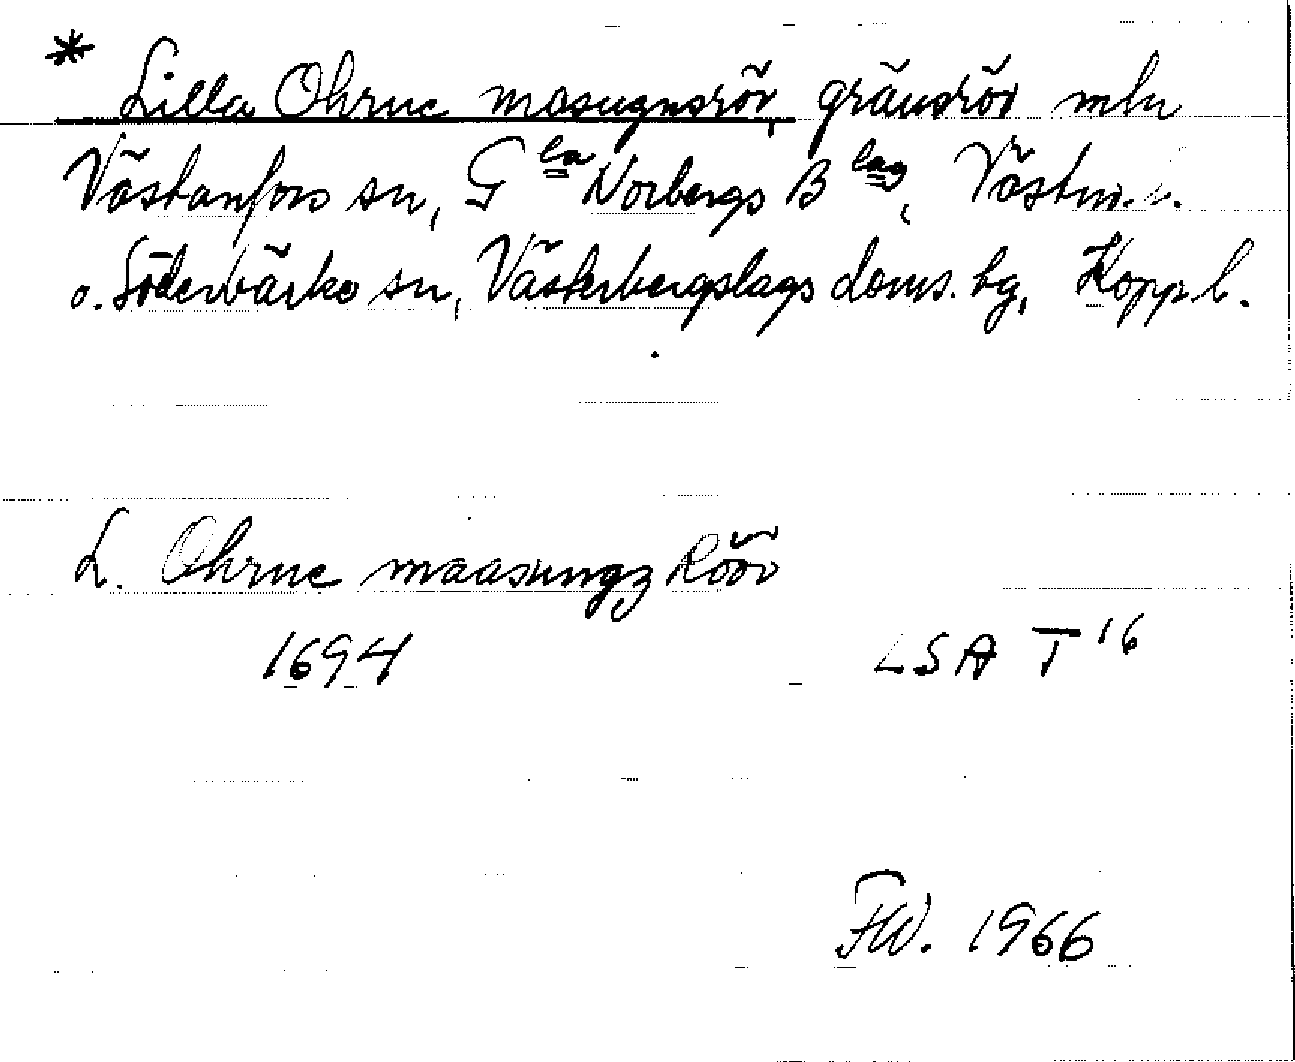 * Lilla Ohrne masugnsrör, gränsrör mln
Västanfors sn, Gla Norbergs Blag, Västm. l.
o. Söderbärke sn, Västerbergslags doms. hg, Kopp l.
L. Ohrne maasungz Röör
1694 LSA T 16
FW. 1966